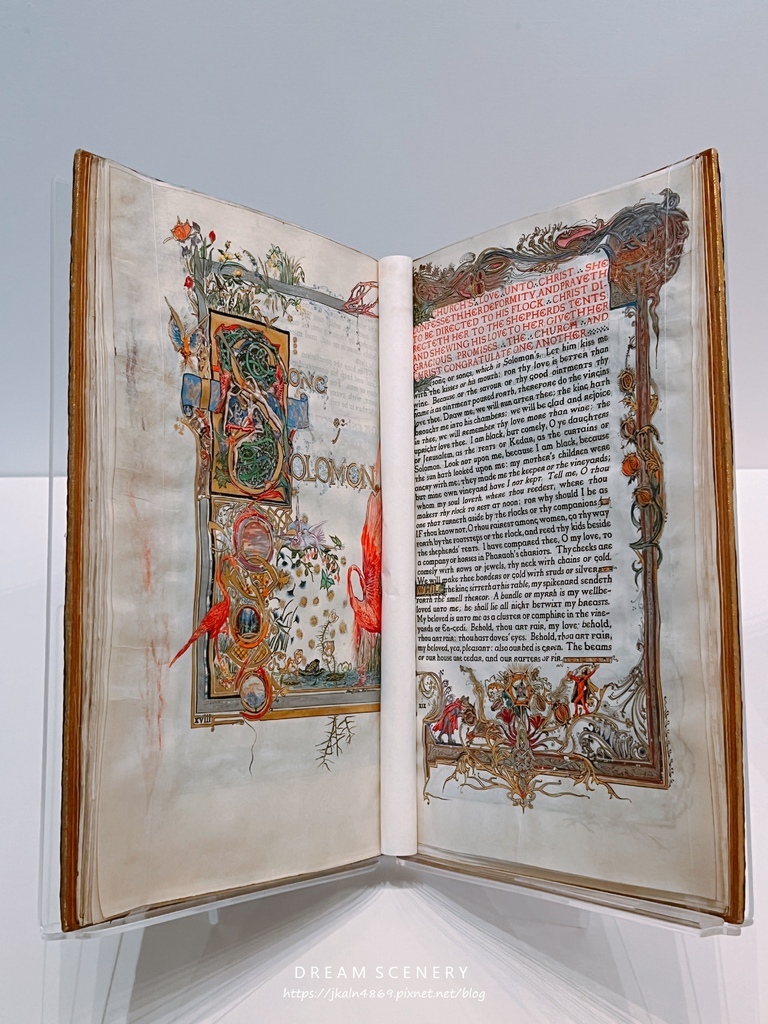 SONG
of
SOLOMON
XVIII
CHURCH'S LOVE UNTO CHRIST. SHE
CONFESSETH HER DEFORMITY, AND PRAYETH
TO BE DIRECTED TO HIS FLOCK. CHRIST DI-
RECTETH HER TO THE SHEPHERDS TENTS
AND SHEWING HIS LOVE TO HER GIVETH HER
GRACIOUS PROMISES. THE CHURCH AND
CHRIST CONGRATULATE ONE ANOTHER.
song of songs, which is Solomon's. Let him kiss me
with the kisses of his mouth: for thy love is better than
wine. Because of the savour of thy good ointments thy
name is as ointment poured forth, therefore do the virgins
love thee. Draw me, we will run after thee: the king hath
brought me into his chambers: we will be glad and rejoice
in thee, we will remember thy love more than wine: the
upright love thee. I am black, but comely, O ye daughters
of Jerusalem, as the tents of Kedar, as the curtains of
Solomon. Look not upon me, because I am black, because
the sun hath looked upon me: my mother's children were
angry with me; they made me the keeper of the vineyards;
but mine own vineyard have I not kept. Tell me, O thou
whom my soul loveth, where thou feedest, where thou
makest thy flock to rest at noon: for why should I be as
one that turneth aside by the flocks of thy companions
If thou know not, O thou fairest among women, go thy way
forth by the footsteps of the flock, and feed thy kids beside
the shepherds' tents. I have compared thee, O my love, to
a company of horses in Pharaoh's chariots. Thy cheeks are
comely with rows of jewels, thy neck with chains of gold.
We will make thee borders of gold with studs of silver.
WHILE the king sitteth at his table, my spikenard sendeth
forth the smell thereof. A bundle of myrrh is my wellbe-
loved unto me; he shall lie all night betwixt my breasts.
My beloved is unto me as a cluster of camphire in the vine-
yards of En-gedi. Behold, thou art fair, my love: behold,
thou art fair; thou hast doves' eyes. Behold, thou art fair,
my beloved, yea, pleasant: also our bed is green. The beams
of our house are cedar, and our rafters of fir.
XIX
DREAM SCENERY
https://jkaln4869.pixnet.net/blog